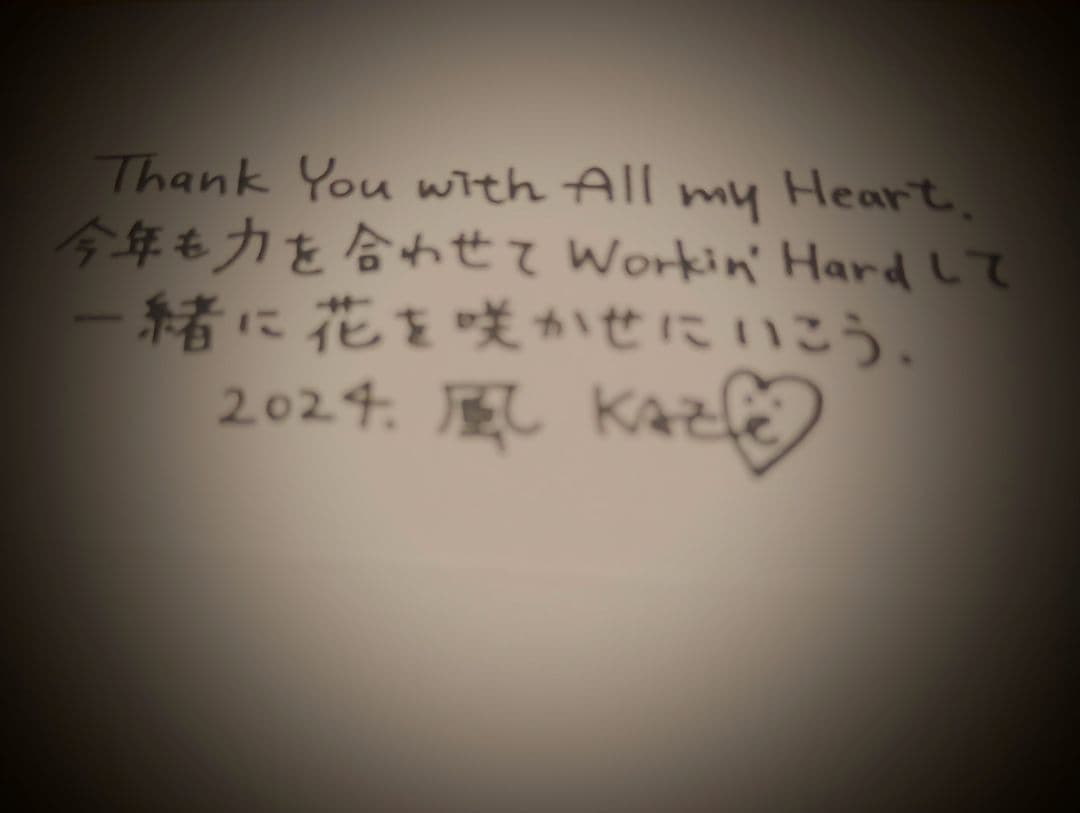 Thank You with All my Heart.
今年も力を合わせて Workin' Hard して
一緒に花を咲かせにいこう.
2024. 風 KAZE